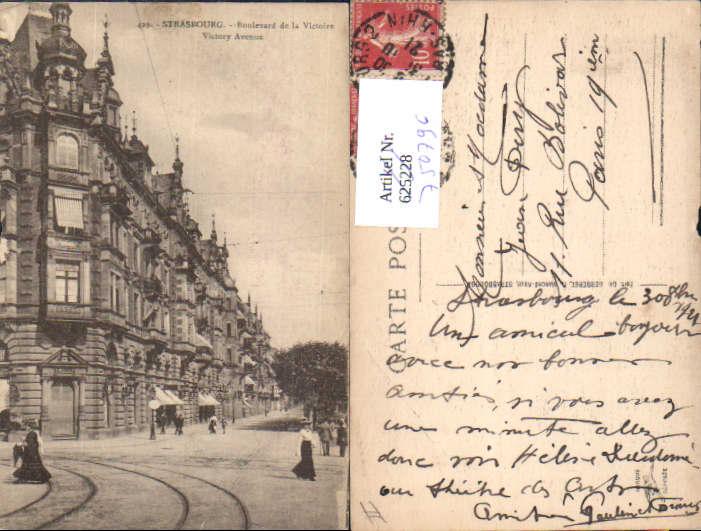 429. - STRASBOURG. - Boulevard de la Victoire
Victory Avenue
Artikel Nr.
625228
750796
Monsieur & Madame
Jean
11. Rue Bolivar
Paris 19ième
CARTE POS
Strasbourg le 30 8bre
1921
Un amical bonjour
avec nos bonnes
amitiés, si vous avez
une minute allez
donc voir Hélène
au théâtre des Arts
Amitiés